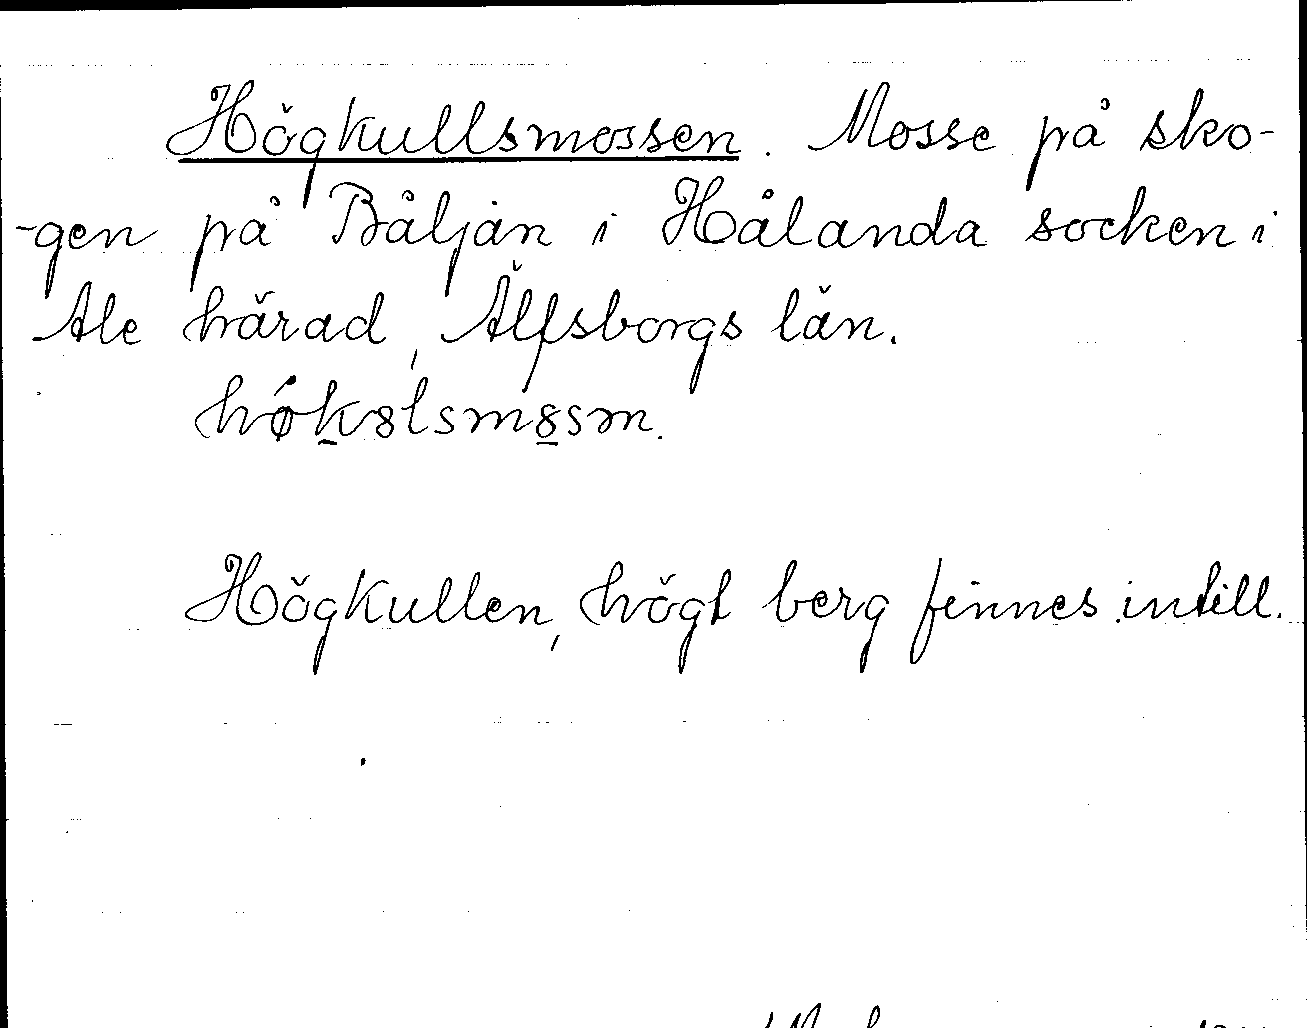 Högkullsmossen. Mosse på sko-
-gen på Båljan i Hålanda socken i
Ale härad, Älfsborgs län.
hǿk̲8lsm8̲sm.
Högkullen, högt berg finnes intill.